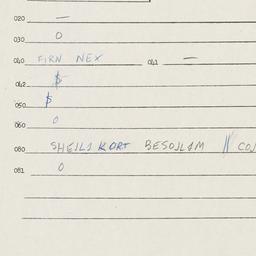 020 —
030 O
040 FIRN NEX 041 —
042 $
050 $
060 O
080 SHEILA KORT BESOLLAM || CO
081 O